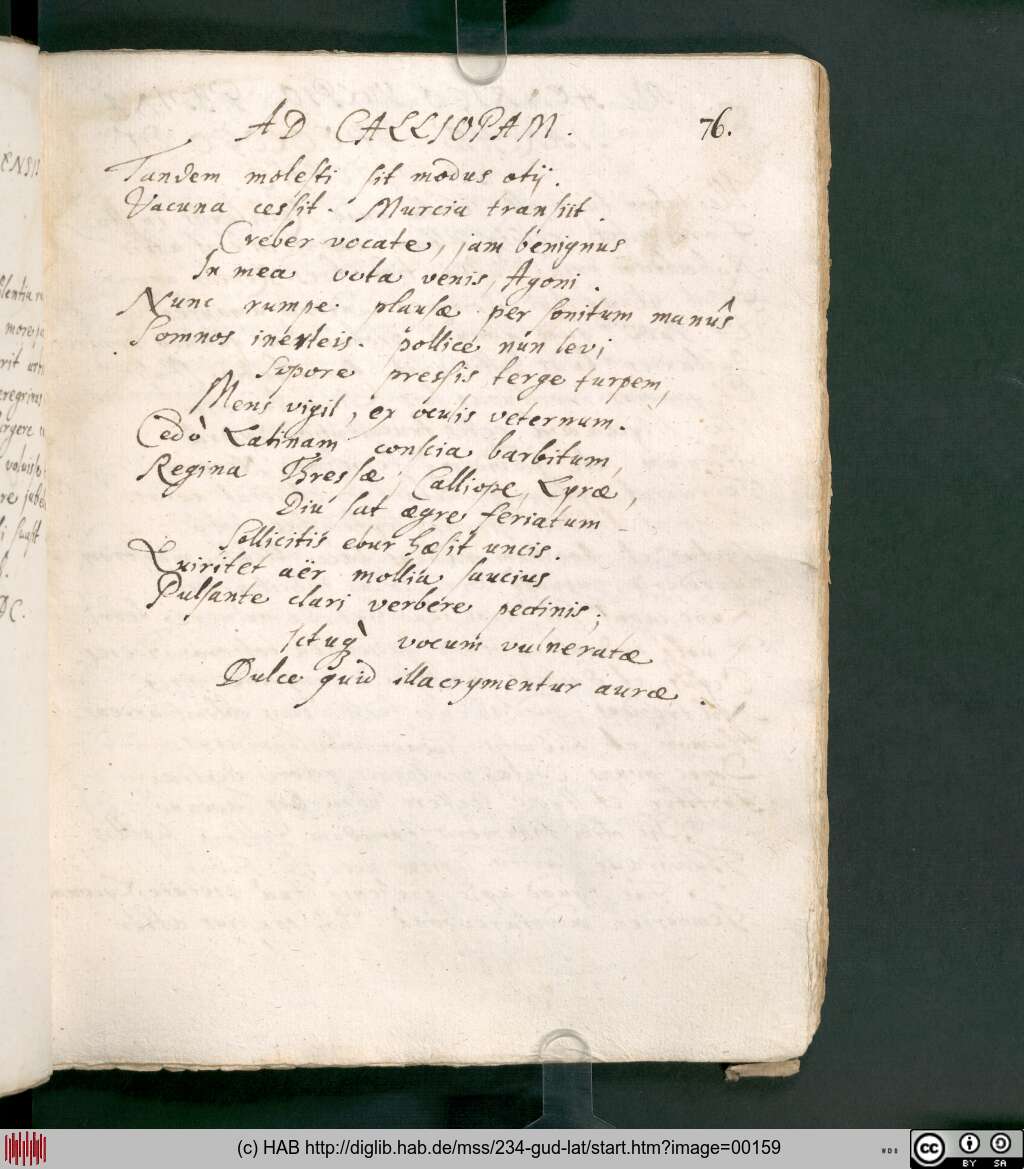 AD CALLIOPAM.
76.
Tandem molesti sit modus otij.
Vacuna cessit. Murcia transiit.
Creber vocate, jam benignus
In mea vota venis, Agoni.
Nunc rumpe plausæ per sonitum manûs
Somnos inerteis. pollice nun levi
Sopore pressis terge turpem,
Mens vigil, er oculis veternum.
Cedò Latinam conscia barbitum,
Regina Thressæ, Calliope, Lyræ,
Diu sat ægre feriatum
Sollicitis ebur hæsit uncis.
Quiritet aër mollia saucius
Pulsante clari verbere pectinis;
Ictuq̀ vocum vulneratæ
Dulce quid illacrymentur auræ.
ENSI
more
DC.
(c) HAB http://diglib.hab.de/mss/234-gud-lat/start.htm?image=00159
WDB
cc
BY SA